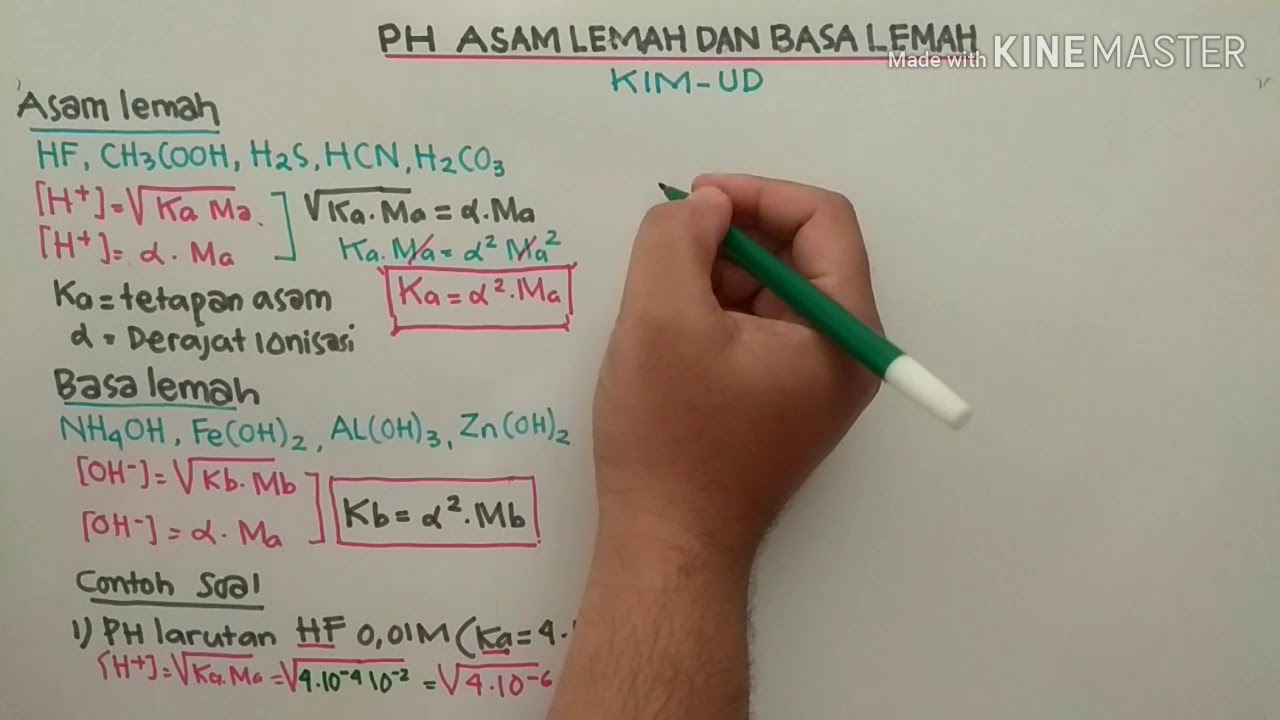 PH ASAM LEMAH DAN BASA LEMAH
Made with KINEMASTER
KIM-UD
Asam lemah
HF, CH3COOH, H2S, HCN, H2CO3
[H+]=√Ka Ma.
[H+]= α . Ma
√Ka.Ma = α.Ma
Ka.Ma = α² Ma²
Ka = α².Ma
Ka = tetapan asam
α = Derajat ionisasi
Basa lemah
NH4OH, Fe(OH)2, AL(OH)3, Zn(OH)2
[OH-]=√Kb.Mb
[OH-] = α. Ma
Kb = α².Mb
Contoh Soal
1) PH larutan HF 0,01M (Ka = 4.
[H+]=√Ka.Ma =√4.10-4 10-2 = √4.10-6